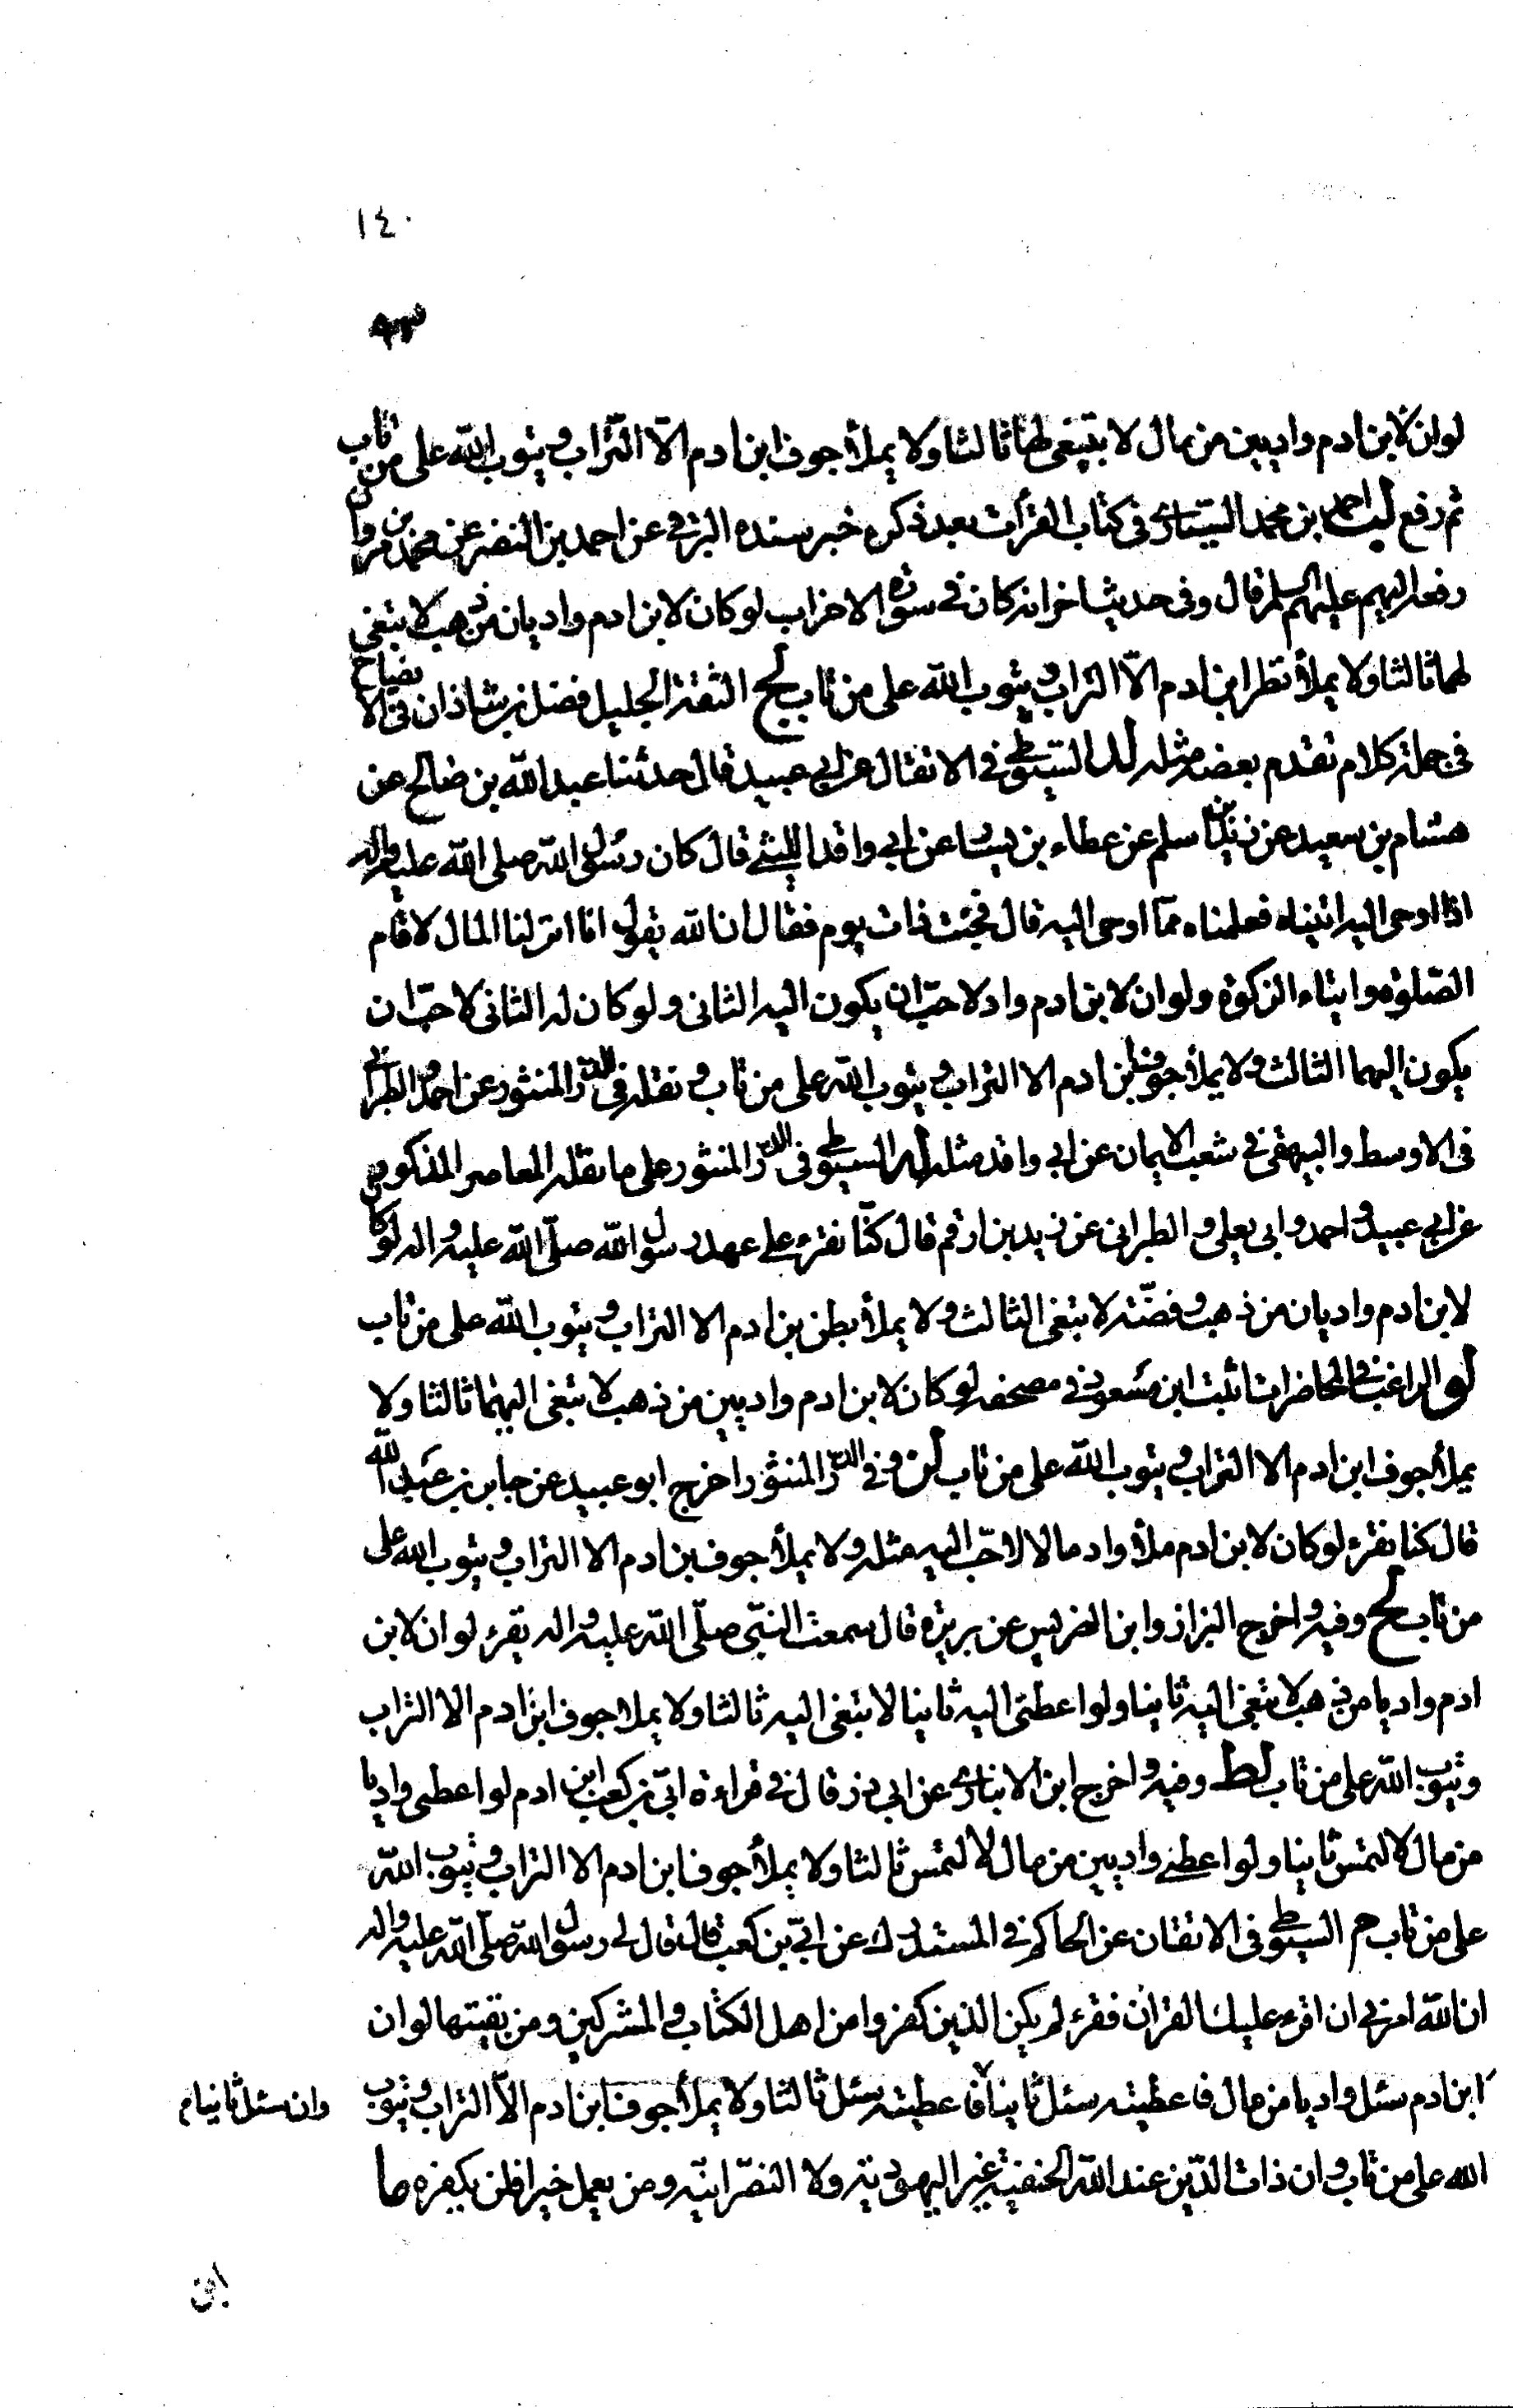 ١٤٠
لو ان لابن ادم واديين من مال لابتغى لهما ثالثا ولا يملأ جوف ابن ادم الا التراب ويتوب الله على من تاب
ثم رفع احمد بن محمد السياري في كتاب القراءات بعد ذكره خبر سنده البرقي عن احمد بن النضر عن محمد بن مروان
رفعه اليهم عليهم السلم قال وفى حديث اخر انه كان في سورة الاحزاب لو كان لابن ادم واديان من ذهب لابتغى
لهما ثالثا ولا يملأ نظر ابن ادم الا التراب ويتوب الله على من تاب لج الثقة الجليل فضل بن شاذان في الايضاح
في جملة كلام تقدم بعضه مثله لد السيوطي في الاتقان عن ابي عبيد قال حدثنا عبد الله بن صالح عن
هشام بن سعيد عن زيد بن اسلم عن عطاء بن يسار عن ابي واقد الليثي قال كان رسول الله صلى الله عليه واله
اذا اوحى اليه اتيناه فعلمناه مما اوحى اليه قال فجئت ذات يوم فقال ان الله يقول انا انزلنا المال لاقام
الصلوة وايتاء الزكوة ولو ان لابن ادم واد لاحب ان يكون اليه الثاني ولو كان له الثاني لاحب ان
يكون اليهما الثالث ولا يملأ جوف ابن ادم الا التراب ويتوب الله على من تاب ونقله في الدر المنثور عن احمد والطبراني
في الاوسط والبيهقي في شعب الايمان عن ابي واقد مثله له السيوطي في الدر المنثور على ما نقله المعاصر المذكور
عن ابي عبيد واحمد وابي يعلى والطبراني عن زيد بن ارقم قال كنا نقرء على عهد رسول الله صلى الله عليه واله لو كان
لابن ادم واديان من ذهب وفضة لابتغى الثالث ولا يملأ بطن بن ادم الا التراب ويتوب الله على من تاب
لو الراغب في المحاضرات اثبت ابن مسعود في مصحفه لو كان لابن ادم واديين من ذهب لابتغى اليهما ثالثا ولا
يملأ جوف ابن ادم الا التراب ويتوب الله على من تاب لز وفي الدر المنثور اخرج ابو عبيد عن جابر بن عبد الله
قال كنا نقرء لو كان لابن ادم ملأ واد مالا لاحب اليه مثله ولا يملأ جوف بن ادم الا التراب ويتوب الله على
من تاب لح وفيه واخرج البزاز وابن الضريس عن بريدة قال سمعت النبي صلى الله عليه واله يقرء لو ان لابن
ادم واديا من ذهب لابتغى اليه ثانيا ولو اعطى اليه ثانيا لابتغى اليه ثالثا ولا يملا جوف ابن ادم الا التراب
ويتوب الله على من تاب لط وفيه واخرج ابن الانباري عن ابي ذر قال في قراءة ابي بن كعب ابن ادم لو اعطى واديا
من مال لالتمس ثانيا ولو اعطى واديين من مال لالتمس ثالثا ولا يملأ جوف ابن ادم الا التراب ويتوب الله
على من تاب م السيوطي في الاتقان عن الحاكم في المستدرك عن ابي بن كعب قال قال لي رسول الله صلى الله عليه واله
ان الله امرني ان اقرء عليك القران فقرء لم يكن الذين كفروا من اهل الكتاب والمشركين ومن بقيتها لو ان
ابن ادم سئل واديا من مال فاعطيته سئل ثانيا فاعطيته سئل ثالثا ولا يملأ جوف ابن ادم الا التراب ويتوب
وان سئل ثانيا م
الله على من تاب وان ذات الدين عند الله الحنفية غير اليهودية ولا النصرانية ومن يعمل خيرا فلن يكفره ما